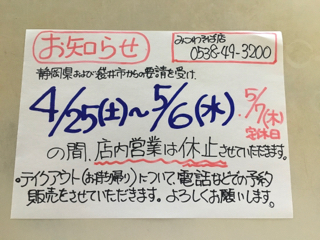 お知らせ
みつわそば店
0538-49-3200
静岡県および袋井市からの要請を受け、
4/25(土)〜5/6(水)
5/7(木)
定休日
の間、店内営業は休止させていただきます。
•テイクアウト(お持ち帰り)について、電話などでの予約
販売をさせていただきます。よろしくお願いします。